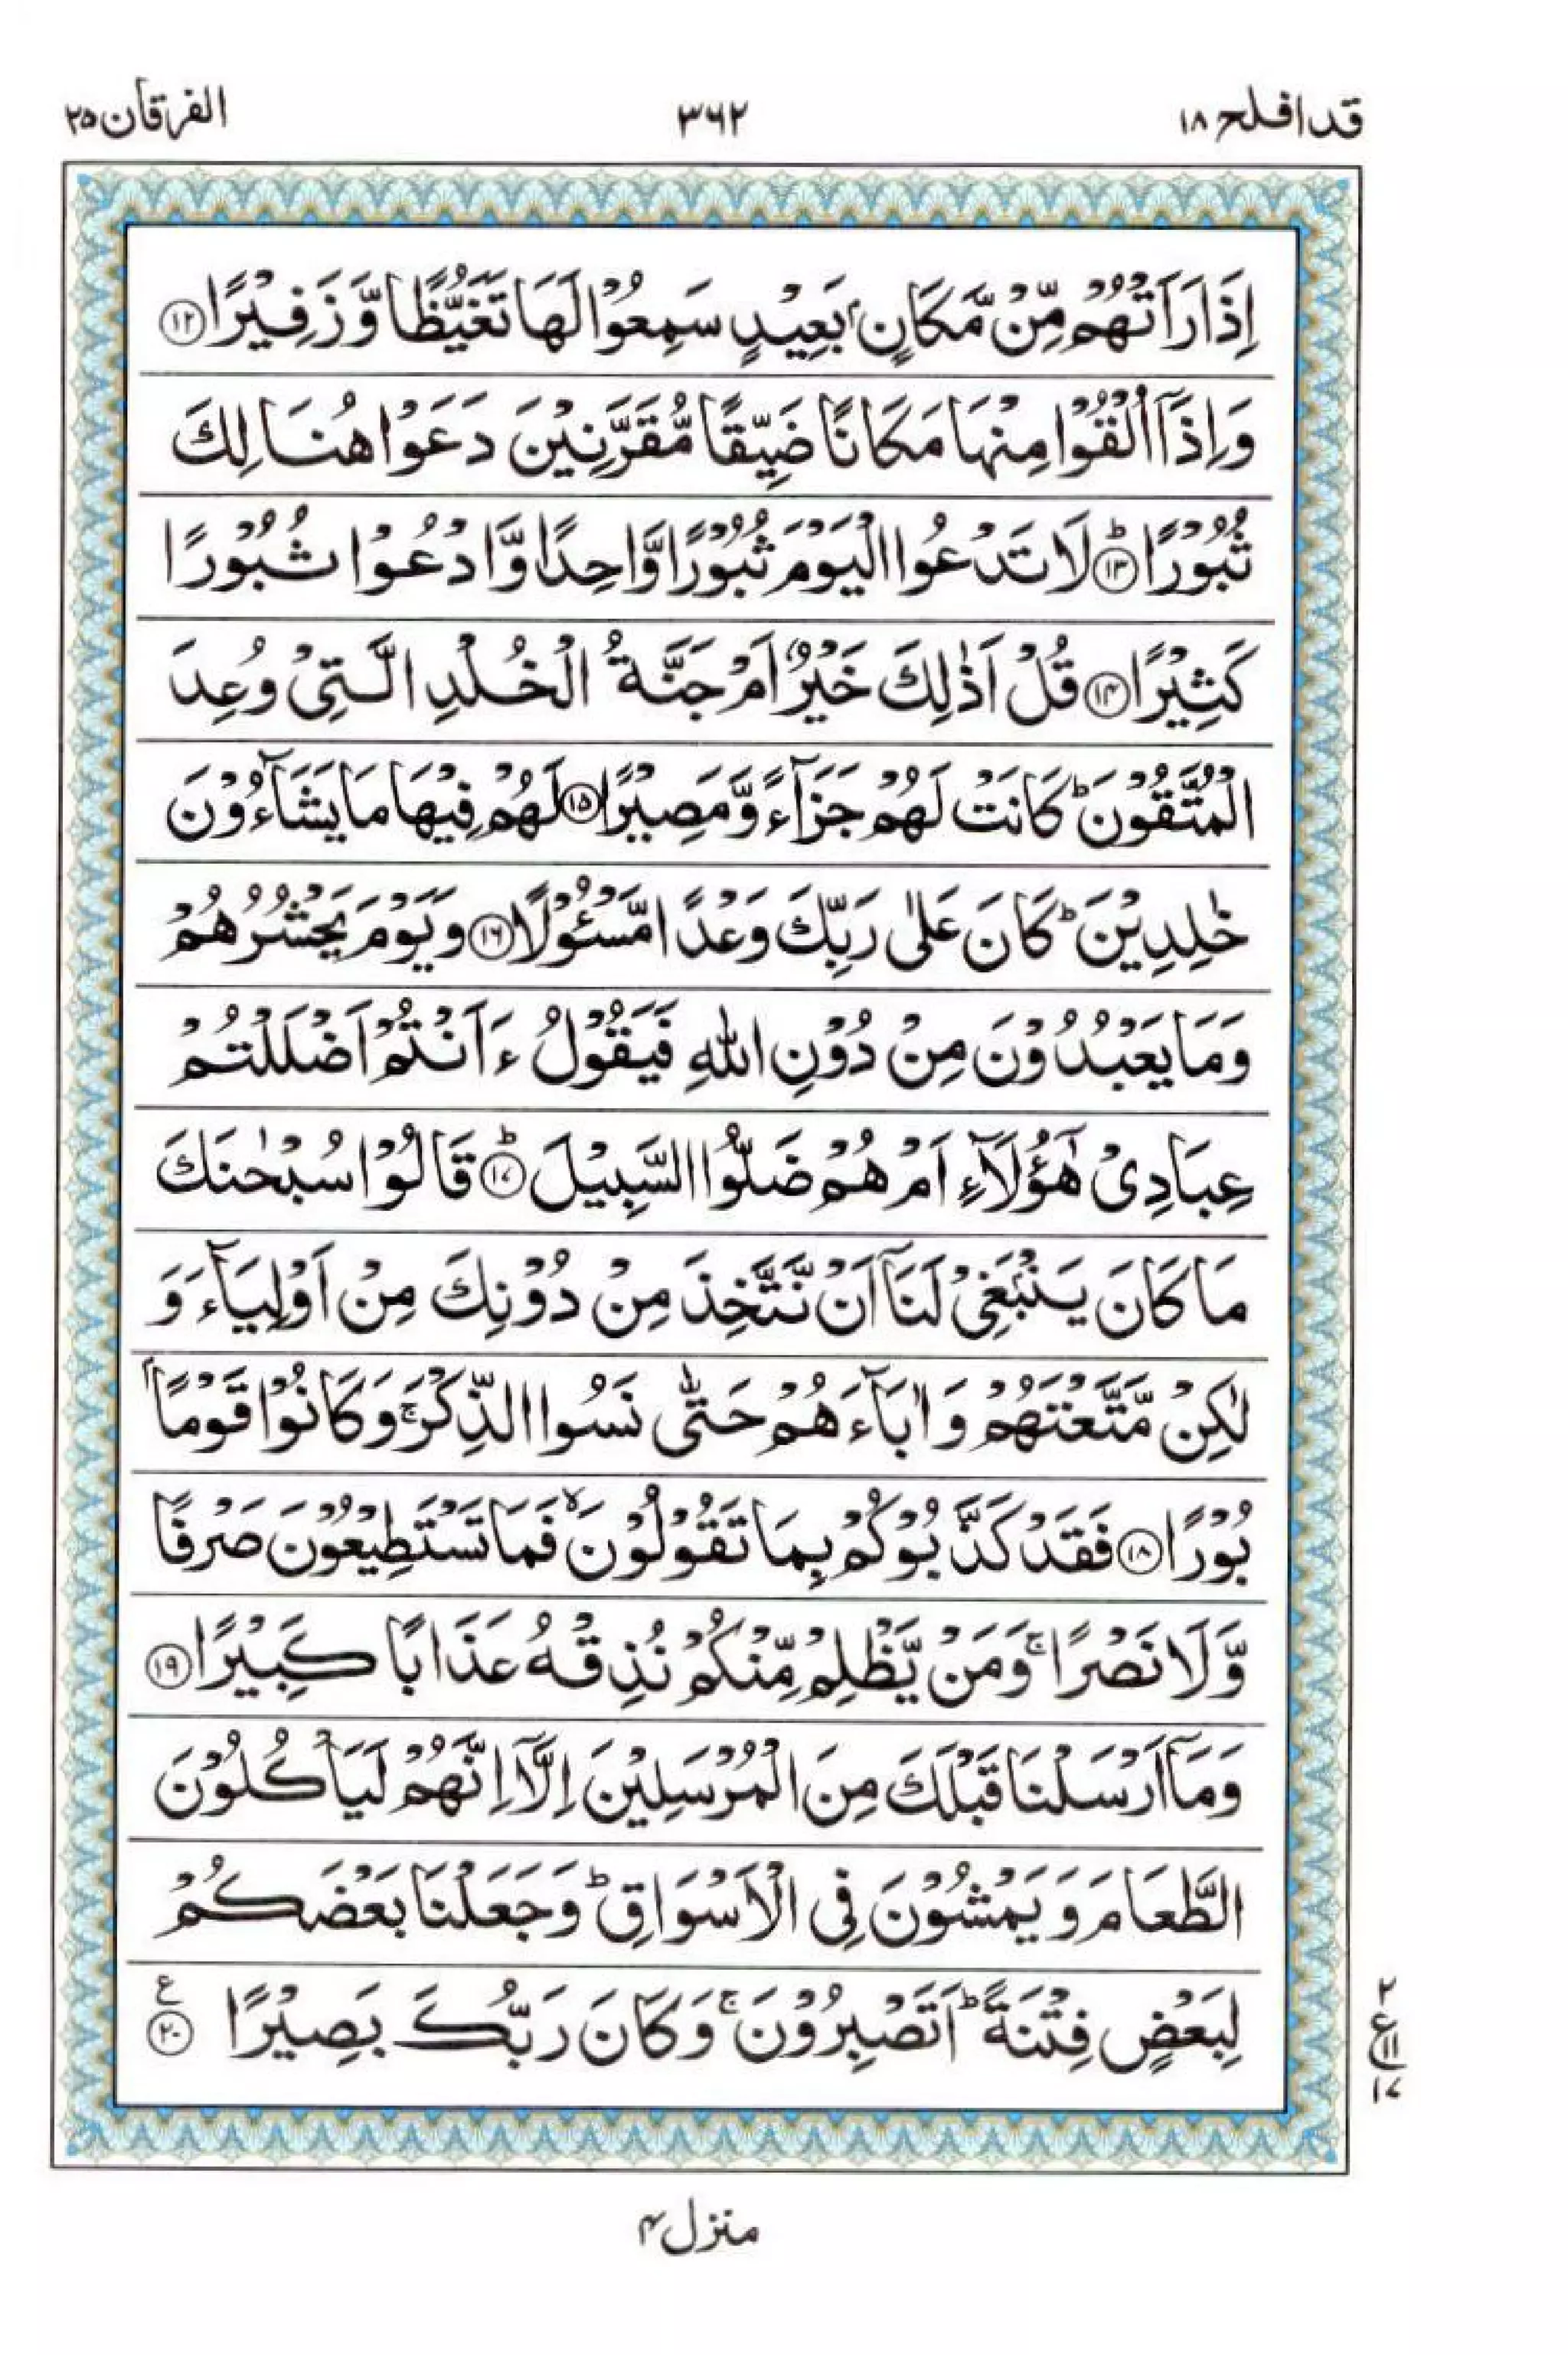 قد افلح ۱۸
۳۶۲
الفرقان ۲۵
اِذَا رَاَتْهُمْ مِّنْ مَّكَانٍۭ بَعِيْدٍ سَمِعُوْا لَهَا تَغَيُّظًا وَّ زَفِيْرًا ﴿۱۲﴾
وَ اِذَاۤ اُلْقُوْا مِنْهَا مَكَانًا ضَيِّقًا مُّقَرَّنِيْنَ دَعَوْا هُنَالِكَ
ثُبُوْرًا ﴿۱۳﴾ؕ لَا تَدْعُوا الْيَوْمَ ثُبُوْرًا وَّاحِدًا وَّ ادْعُوْا ثُبُوْرًا
كَثِيْرًا ﴿۱۴﴾ قُلْ اَذٰلِكَ خَيْرٌ اَمْ جَنَّةُ الْخُلْدِ الَّتِىْ وُعِدَ
الْمُتَّقُوْنَ ؕ كَانَتْ لَهُمْ جَزَآءً وَّ مَصِيْرًا ﴿۱۵﴾ لَهُمْ فِيْهَا مَا يَشَآءُوْنَ
خٰلِدِيْنَ ؕ كَانَ عَلٰى رَبِّكَ وَعْدًا مَّسْـُٔوْلًا ﴿۱۶﴾ وَ يَوْمَ يَحْشُرُهُمْ
وَ مَا يَعْبُدُوْنَ مِنْ دُوْنِ اللّٰهِ فَيَقُوْلُ ءَاَنْتُمْ اَضْلَلْتُمْ
عِبَادِىْ هٰٓؤُلَآءِ اَمْ هُمْ ضَلُّوا السَّبِيْلَ ﴿۱۷﴾ؕ قَالُوْا سُبْحٰنَكَ
مَا كَانَ يَنْۢبَغِىْ لَنَاۤ اَنْ نَّتَّخِذَ مِنْ دُوْنِكَ مِنْ اَوْلِيَآءَ وَ
لٰكِنْ مَّتَّعْتَهُمْ وَ اٰبَآءَهُمْ حَتّٰى نَسُوا الذِّكْرَ ۚ وَ كَانُوْا قَوْمًۢا
بُوْرًا ﴿۱۸﴾ فَقَدْ كَذَّبُوْكُمْ بِمَا تَقُوْلُوْنَ ۙ فَمَا تَسْتَطِيْعُوْنَ صَرْفًا
وَّ لَا نَصْرًا ۚ وَ مَنْ يَّظْلِمْ مِّنْكُمْ نُذِقْهُ عَذَابًا كَبِيْرًا ﴿۱۹﴾
وَ مَاۤ اَرْسَلْنَا قَبْلَكَ مِنَ الْمُرْسَلِيْنَ اِلَّاۤ اِنَّهُمْ لَيَاْكُلُوْنَ
الطَّعَامَ وَ يَمْشُوْنَ فِى الْاَسْوَاقِ ؕ وَ جَعَلْنَا بَعْضَكُمْ
لِبَعْضٍ فِتْنَةً ؕ اَتَصْبِرُوْنَ ۚ وَ كَانَ رَبُّكَ بَصِيْرًا ﴿۲۰﴾ ع
۲
ع
۱۱
۱۷
منزل ۴